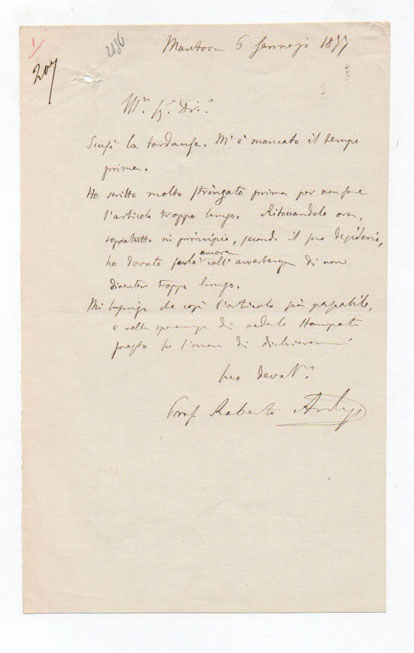 1/
207
286
Mantova 6 Gennajo 1877
Scusi la tardanza. M'è mancato il tempo
prima.
Ho scritto molto stringato prima per non fare
l'articolo troppo lungo. Ritoccandolo ora,
soprattutto in principio, secondo il suo desiderio,
ho dovuto farlo ancora coll'avvertenza di non
diventar troppo lungo.
Mi lusingo che così l'articolo sia passabile,
e nella speranza di vederlo stampato
presto ho l'onore di dichiararmi
suo devot.º
Prof Roberto Ardigò